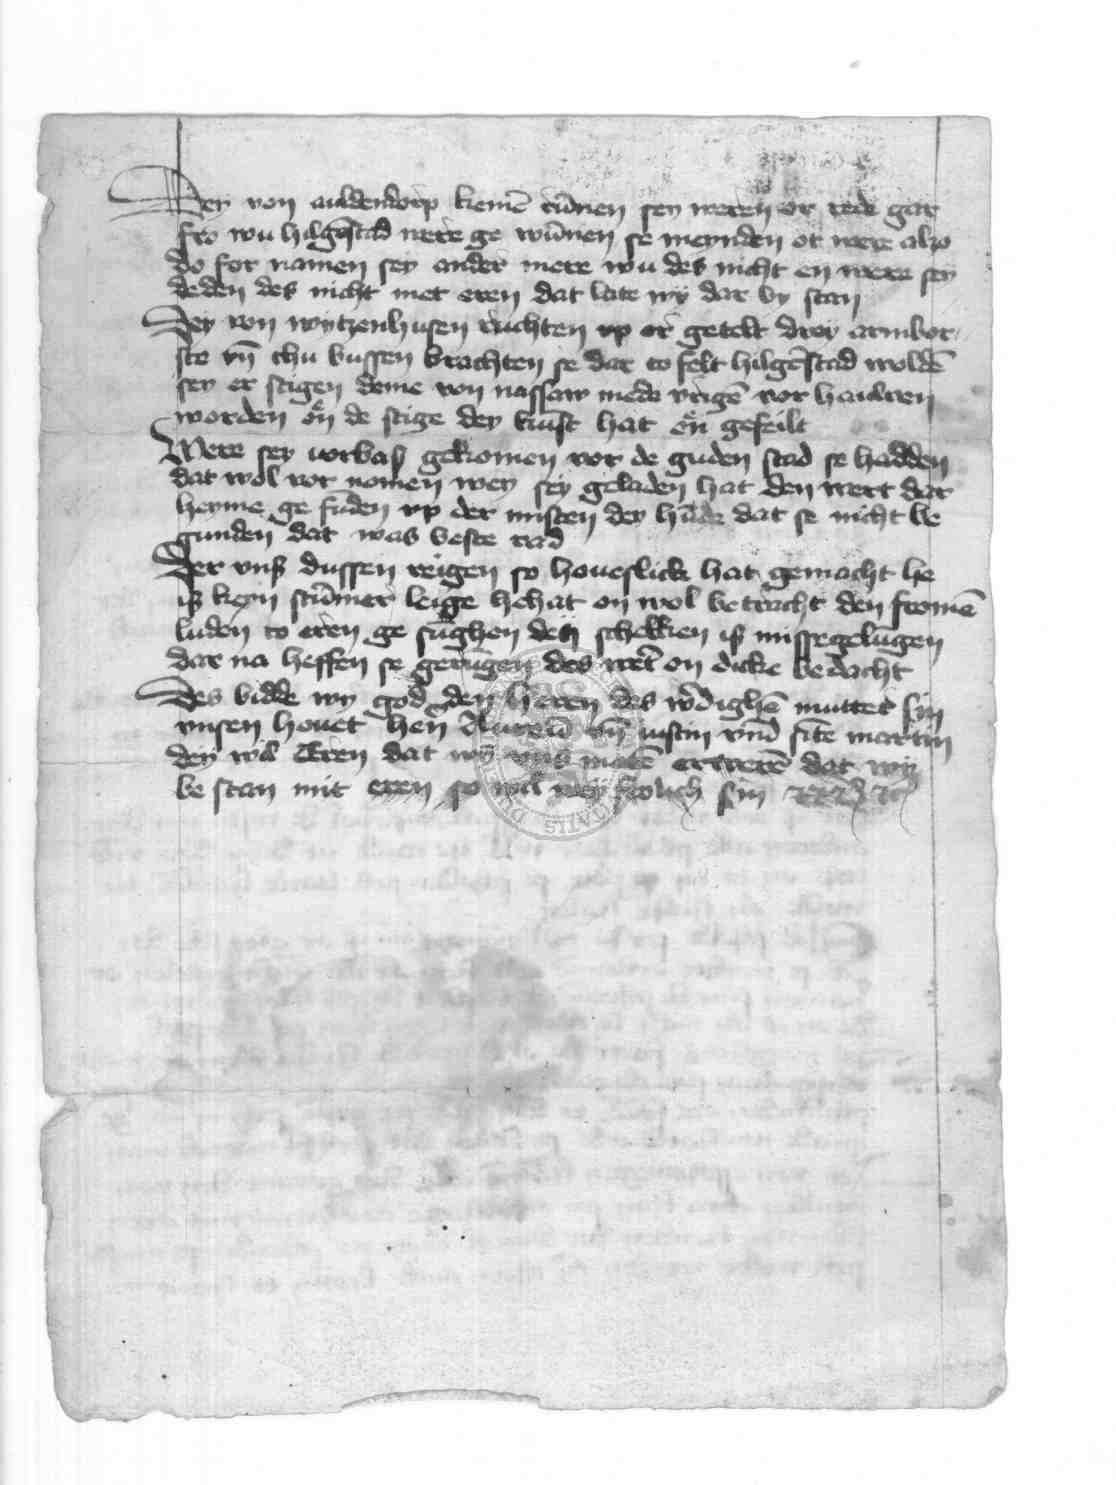 Dey von auldendorp kemē rūnen sey weren or rede gar
fro wu hilgēstad were ge wūnen se meynden ot were alzo
do for namen sey ander mere wu des nicht en were sey
deden des nicht met eren dat late wy dar by stan
Dey von wytzenhusen ruchten vp or getelt drey armbor
ste vn̄ thu bussen brachten se dar to felt hilgēstad woldē
sey er stigen deme von nassaw mede vrigē vor hauwen
worden on de stige dey kunst hat on gefeilt
Were sey vorbaß gekomen vor de guden stad se hadden
dat wol vor nomen wey sey geladen hat den wert dar
heyme ge fūden vp der misten dey hūde dat se nicht be
gunden dat was beste rad
Der vnß dussen reigen so houeslick hat gemacht he
iß keyn stūmer leige he hat on wol be tracht den fromē
luden to eren ge sūghen den schelken iß missegelūgen
dar na hessen se gerūgen des wert on dicke bedacht
Des bidde wy god den heren des wērdighē mutter sin
vnsen houet hern Aureū vn̄ iustin vnd sūte martin
dey wil Eren dat wy vns motē erwerē dat wy
be stan mit eren so wil wey frolich sin